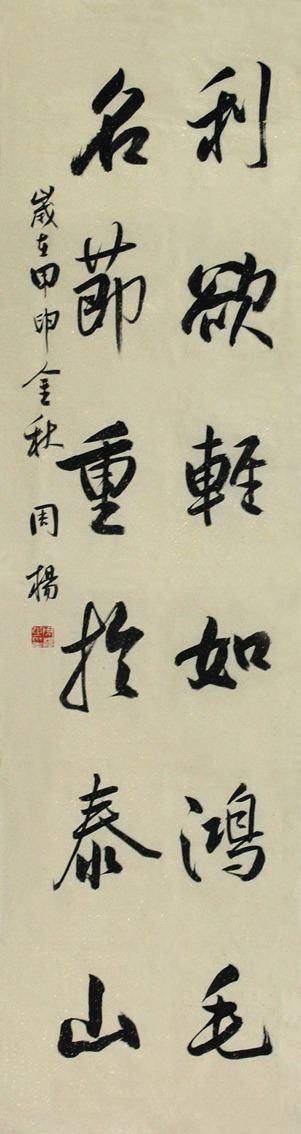 利欲輕如鴻毛
名節重於泰山
歲在甲申金秋 周楊